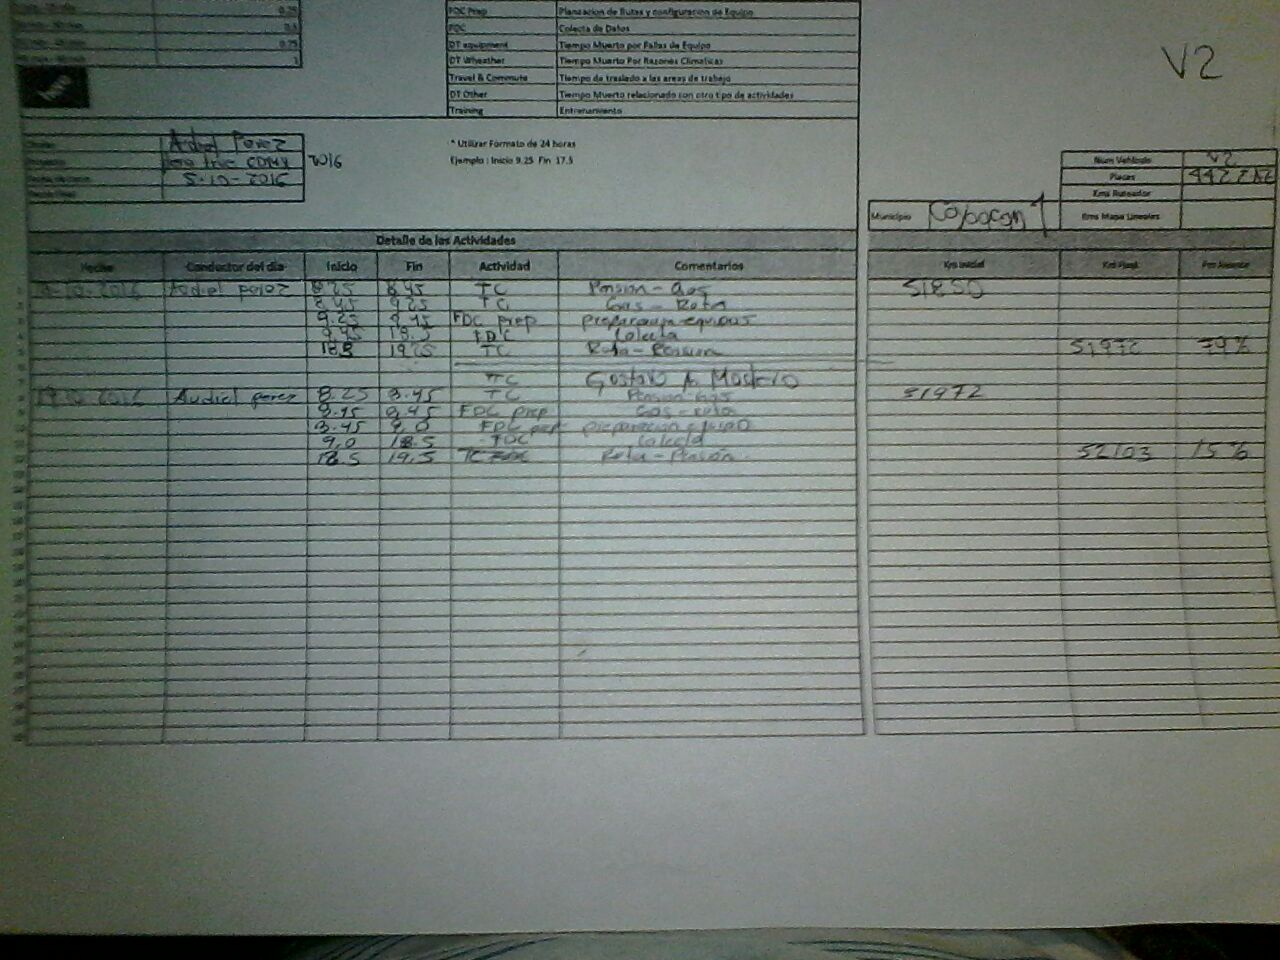 0.25
0.5
0.75
1
FDC Prep Planeacion de Rutas y configuracion de Equipo
FDC Colecta de Datos
DT equipment Tiempo Muerto por Fallas de Equipo
DT Wheather Tiempo Muerto Por Razones Climaticas
Travel & Commute Tiempo de traslado a las areas de trabajo
DT Other Tiempo Muerto relacionado con otro tipo de actividades
Training Entrenamiento
V2
Audiel Perez
CDMX 2016
5-10-2016
* Utilizar Formato de 24 horas
Ejemplo : Inicio 9.25 Fin 17.5
Num Vehiculo V2
Placas
Kms Ruteador
Municipio Coyoacan 1 Kms Mapa Lineales
Detalle de las Actividades
Fecha Conductor del dia Inicio Fin Actividad Comentarios Km Inicial Km Final
Audiel perez 8.25 8.45 TC Pension-Gas 51850
8.45 9.25 TC Gas-Ruta
9.25 9.45 FDC prep preparacion equipos
9.45 18.5 FDC Colecta
19.25 TC Ruta-Pension 51972 79%
TC Gustavo A Madero
Audiel perez 8.25 8.45 TC Pension-Gas 51972
FDC prep Gas-ruta
9.0 FDC prep preparacion equipo
9.0 18.5 FDC Colecta
18.5 19.5 TC Ruta-Pensión 52103 15%